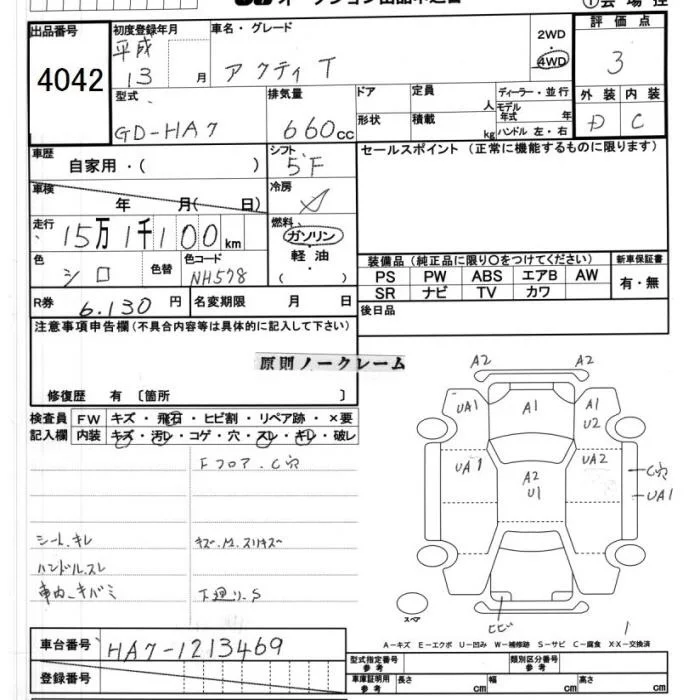 出品番号 4042
初度登録年月 平成 13 月
車名・グレード アクティ T
2WD ・ 4WD
評価点 3
型式 GD-HA7
排気量 660cc
ドア 形状
定員 人 積載 kg
ディーラー・並行
モデル年式 年
ハンドル 左・右
外装 D 内装 C
車歴 自家用・( )
シフト 5F
セールスポイント (正常に機能するものに限ります)
車検 年 月( 日)
冷房
走行 15万1千100km
燃料 ガソリン ・ 軽油 ( ・ )
色 シロ 色替 色コード NH578
装備品 (純正品に限り○をつけてください)
新車保証書
PS PW ABS エアB AW
有・無
SR ナビ TV カワ
R券 6.130 円 名変期限 月 日
後日品
注意事項申告欄(不具合内容等は具体的に記入して下さい)
原則ノークレーム
修復歴 有 〔箇所 〕
検査員 FW キズ・飛石・ヒビ割・リペア跡・×要
記入欄 内装 キズ・汚レ・コゲ・穴・スレ・キレ・破レ
Fフロア.C穴
シート.キレ キズ.M.スリキズ
ハンドル.スレ
車内.キバミ 下廻リ.S
A2 A2
UA1 A1 A1
U2
UA1 A2 UA2
U1
C穴
UA1
スペア
ヒビ
1
A-キズ E-エクボ U-凹み W-補修跡 S-サビ C-腐食 XX-交換済
車台番号 HA7-1213469
登録番号
型式指定番号 参考 類別区分番号 参考
車庫証明用 参考 長さ cm 幅 cm 高さ cm